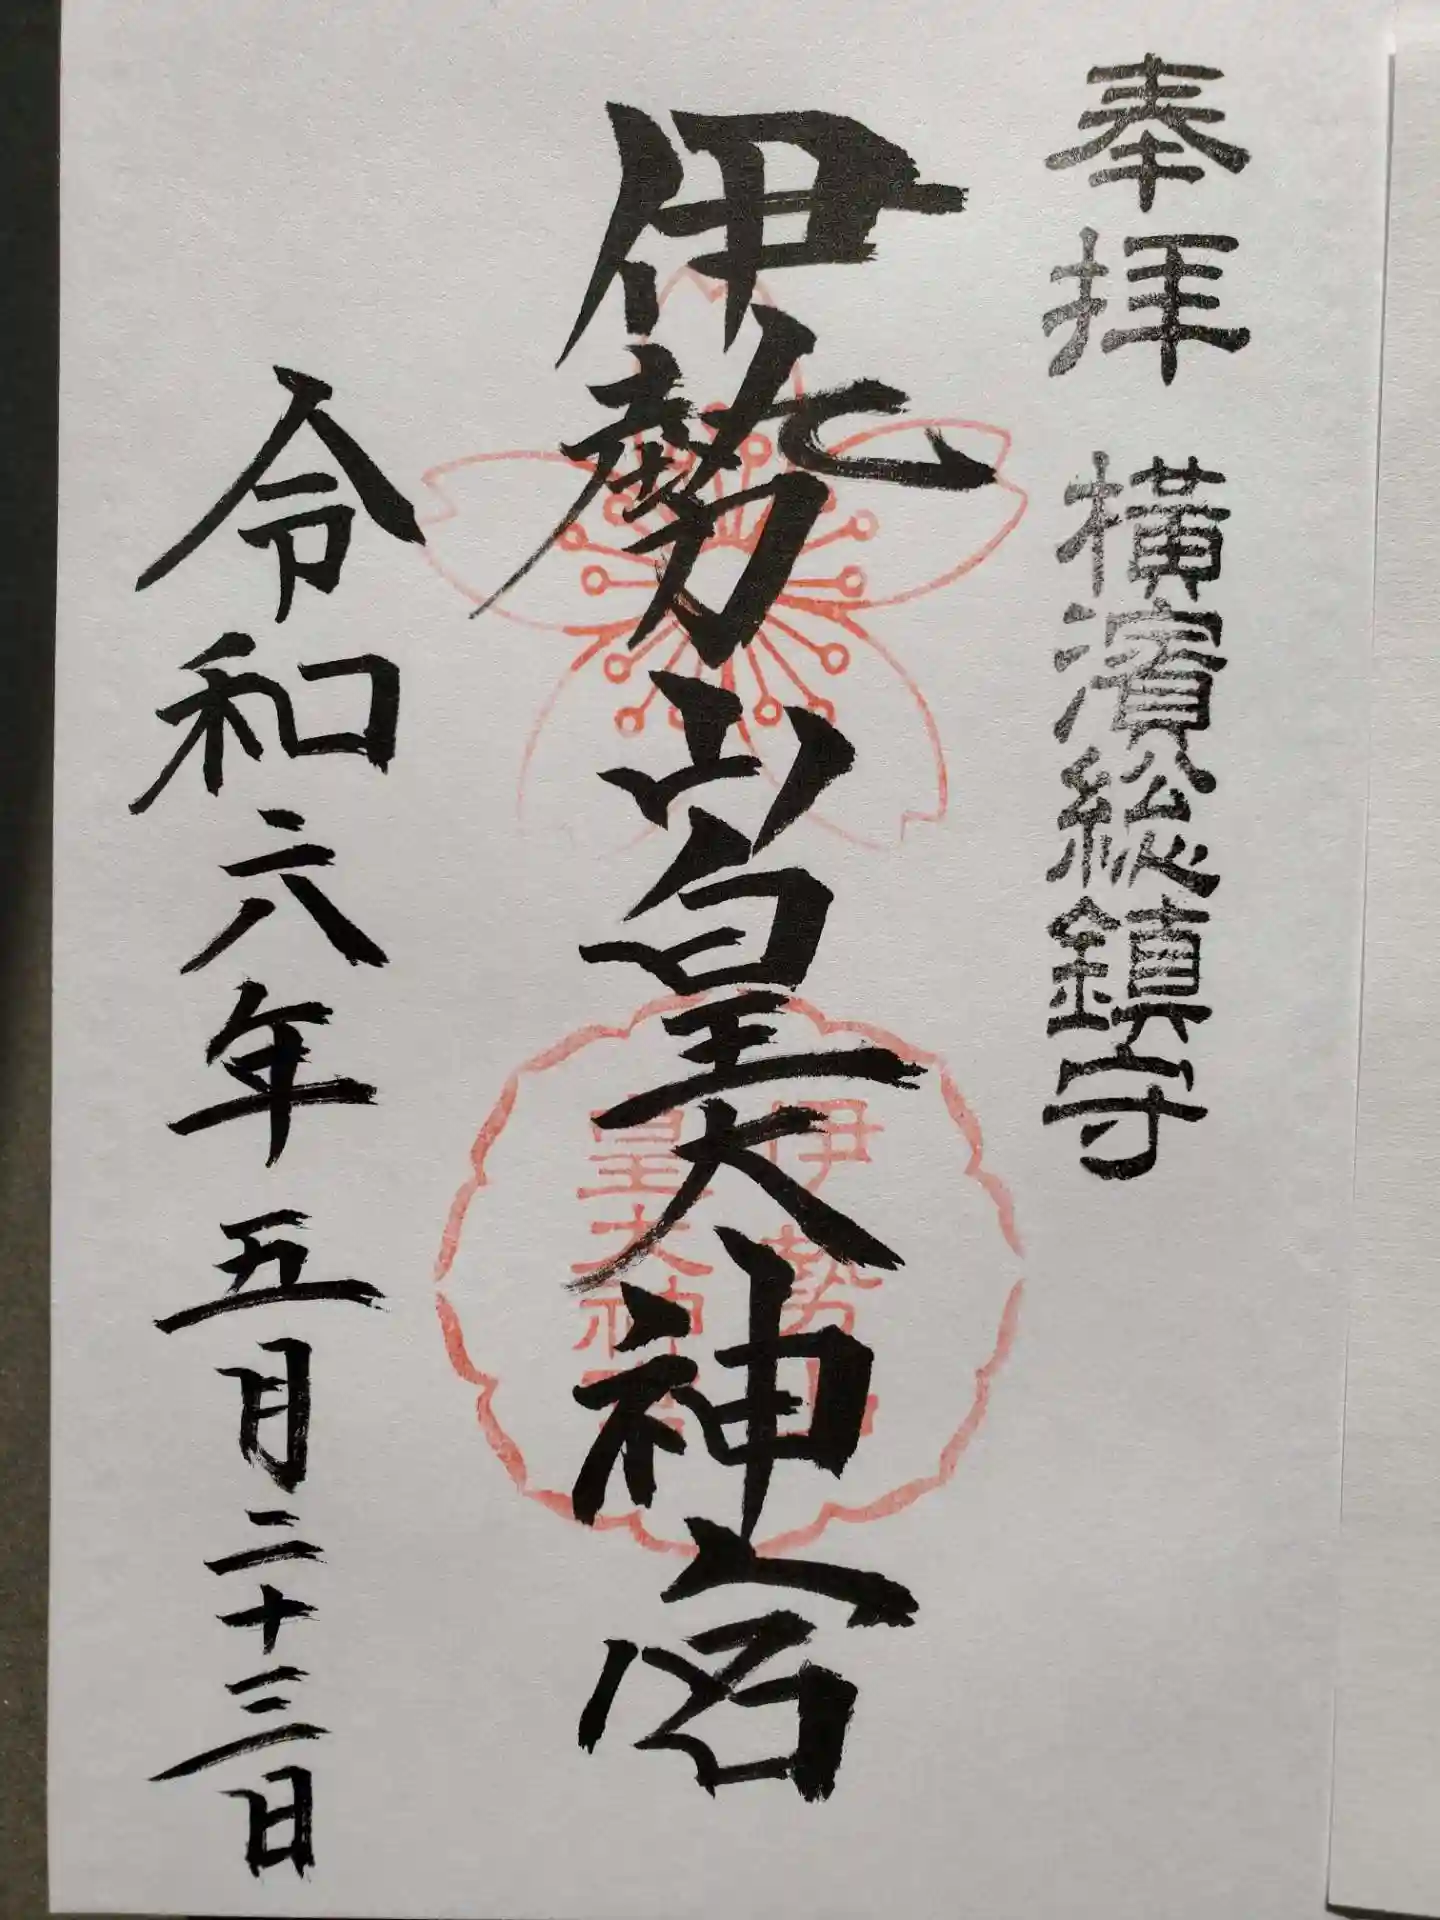 奉拝 横濱総鎮守
伊勢山皇大神宮
伊勢山
皇大神宮
令和六年五月二十三日